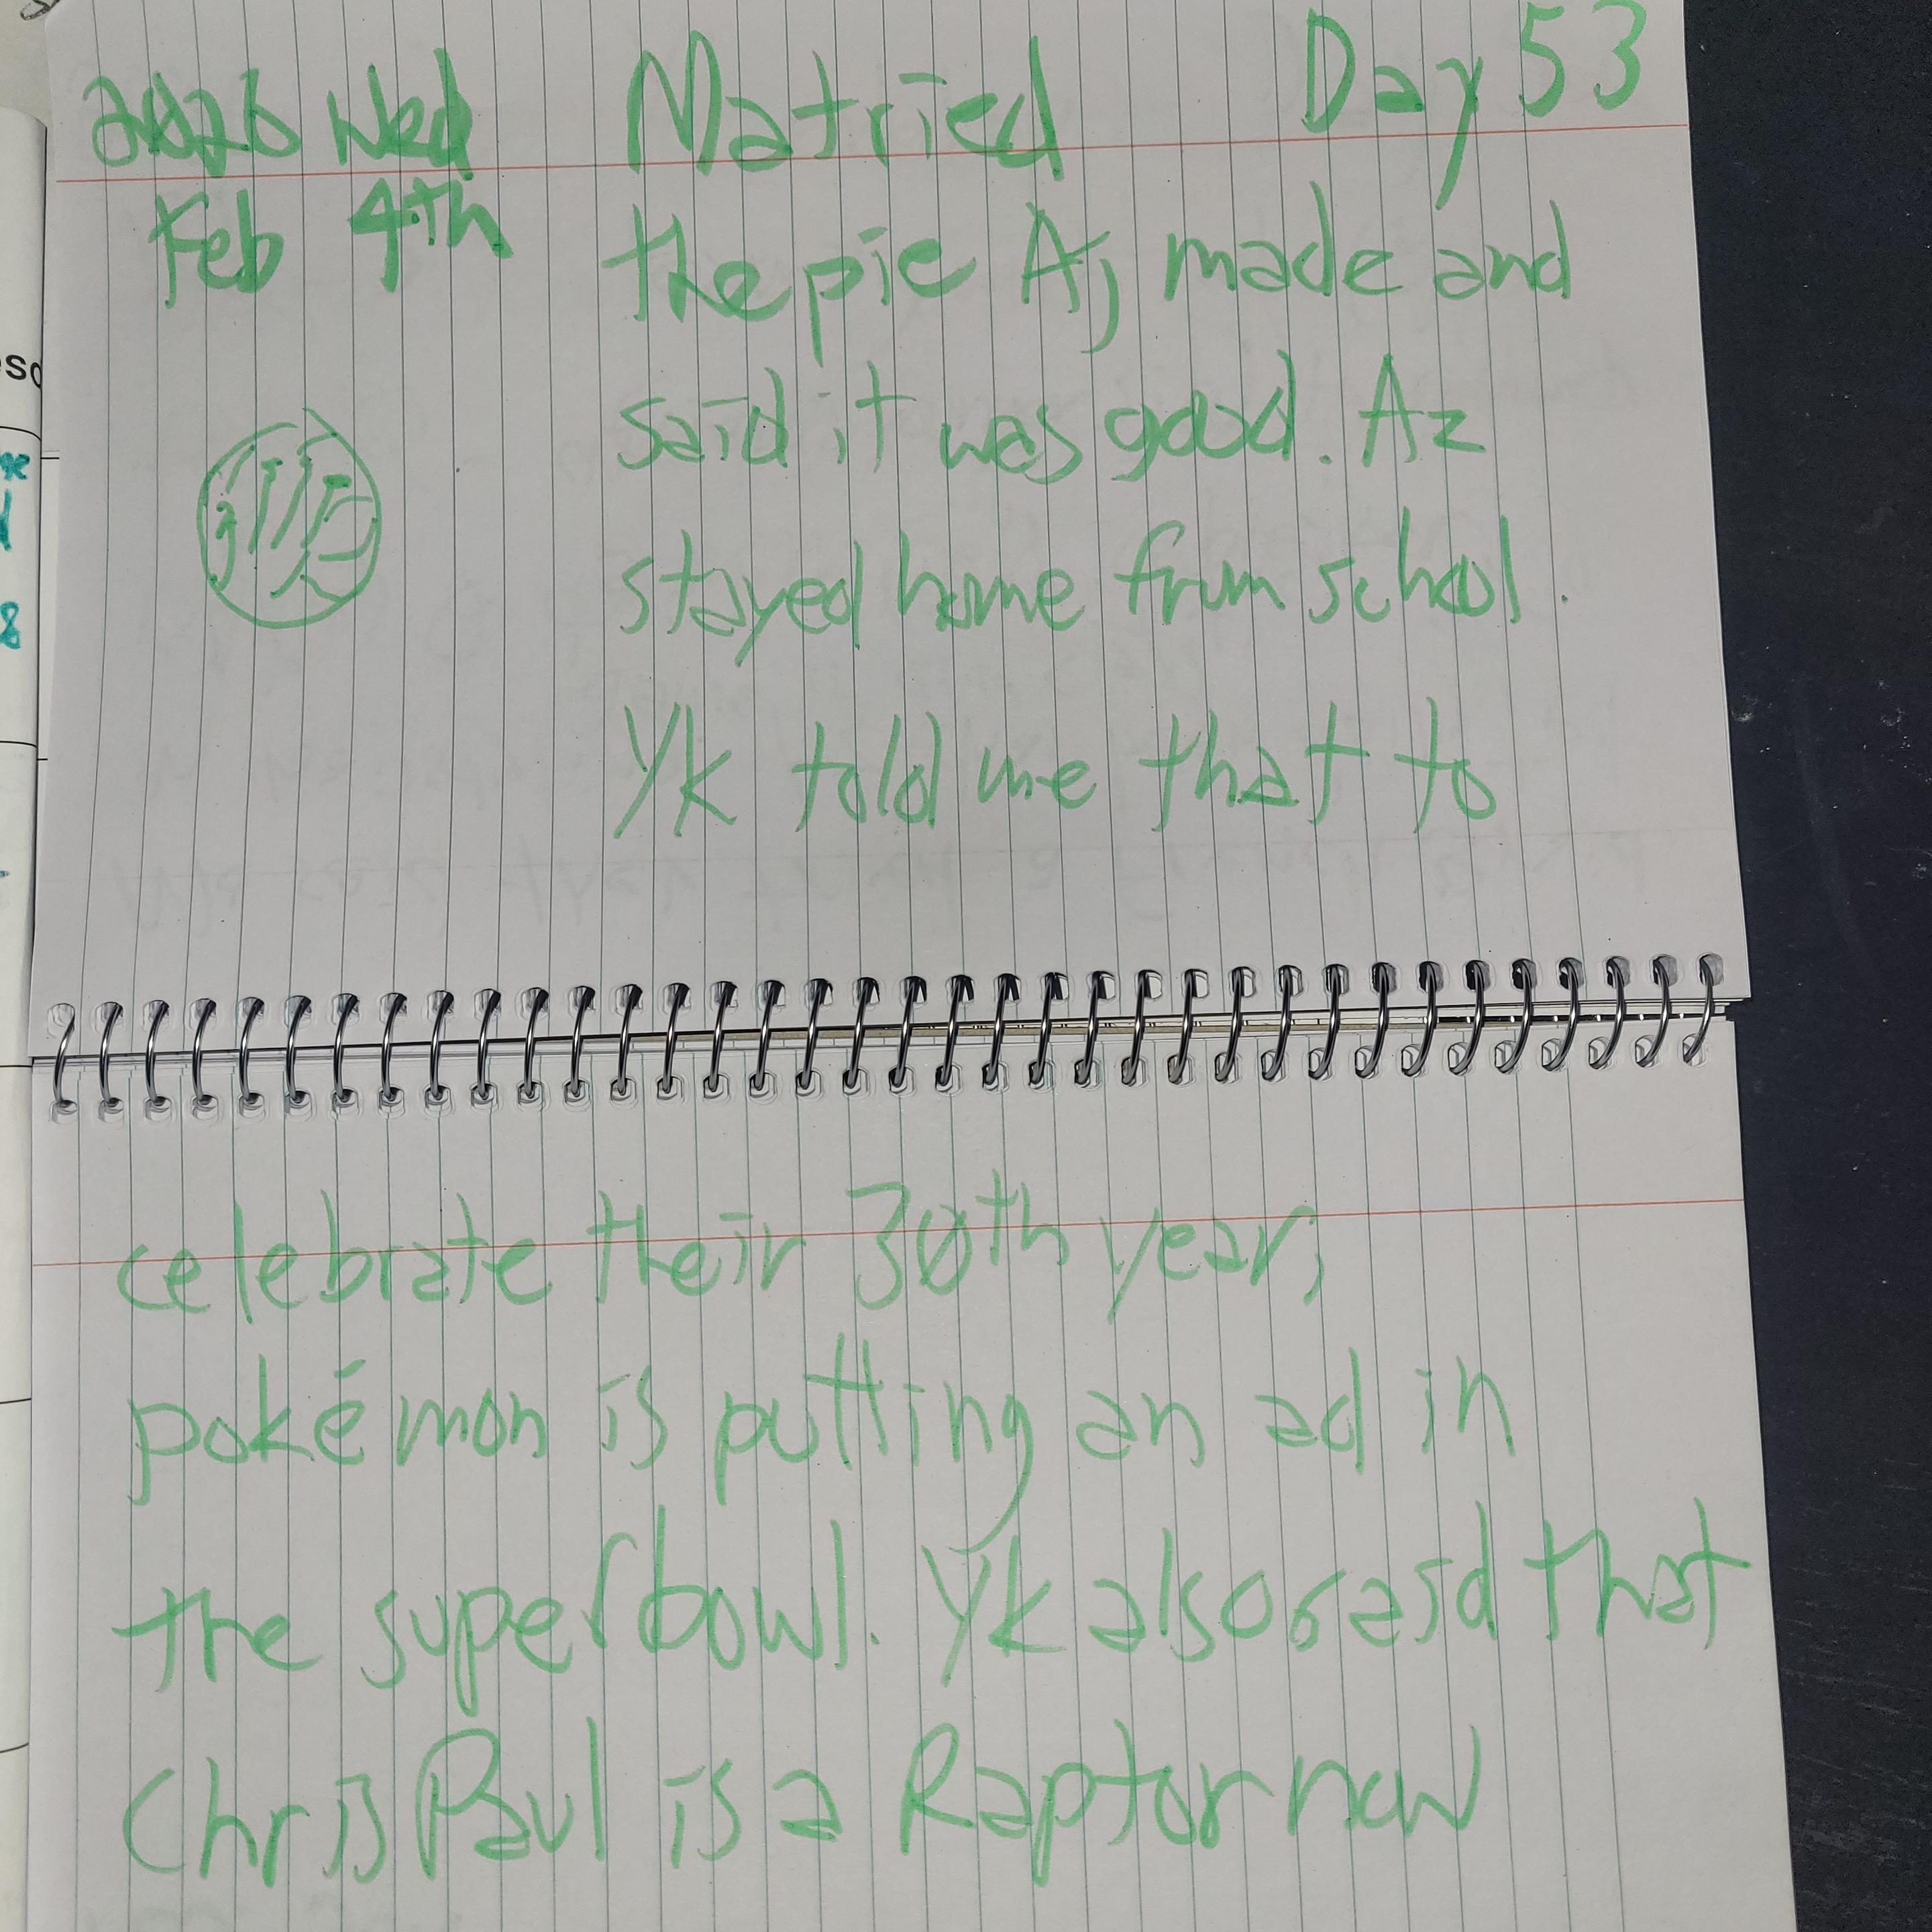 2026 Wed
Feb 4th
Day 53
Ma tried
the pie Aj made and
said it was good. Az
stayed home from school.
Yk told me that to
celebrate their 30th year,
pokémon is putting an ad in
the superbowl. Yk also said that
Chris Paul is a Raptor now